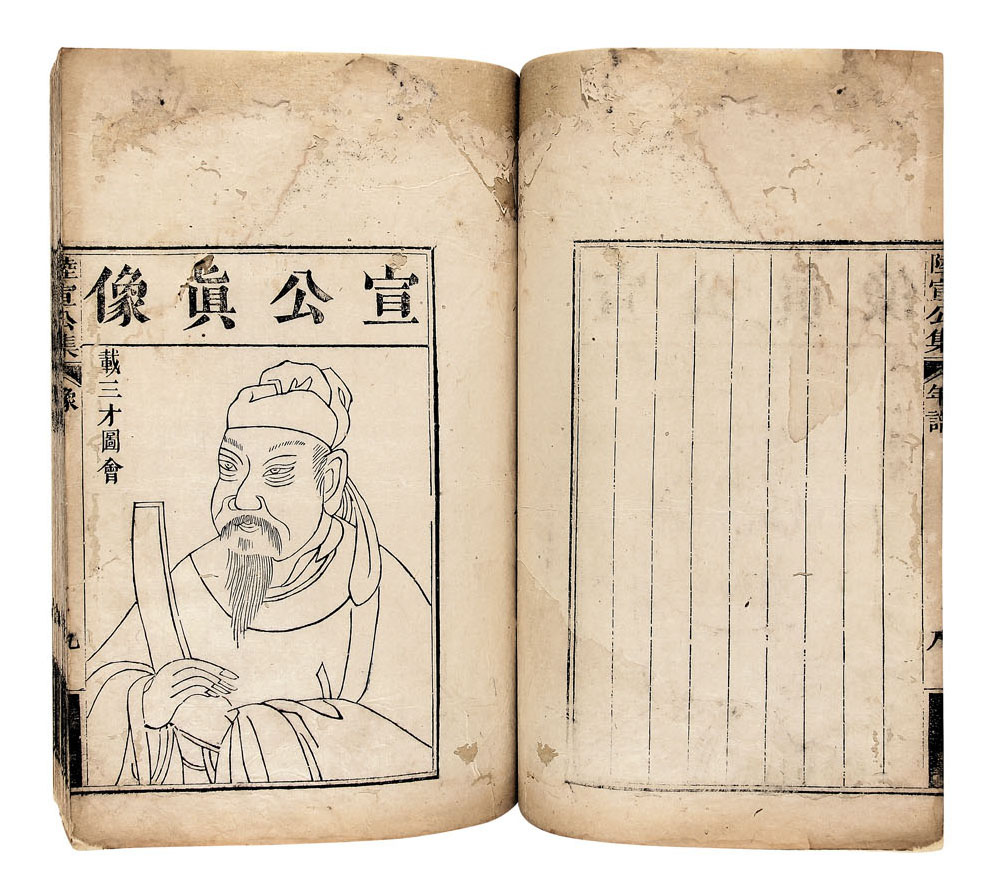 陸宣公集
年譜
八
宣公眞像
載三才圖會
陸宣公集
像
九